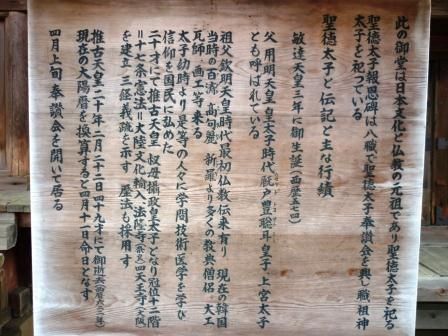 此の御堂は日本文化と仏教の元祖であり聖徳太子を祀る
聖徳太子報恩碑は八職で聖徳太子奉讃会を興し職祖神
太子を祀っている
聖徳太子と伝記と主な行績
敏達天皇三年に御生誕(西歴五七四)
父用明天皇 皇太子時代 厩戸豊聡耳皇子 上宮太子
とも呼ばれている
祖父欽明天皇時代最初仏教伝来有り 現在の韓国
当時の百済 高句麗 新羅より多くの教典 僧侶 大工
瓦師 画工等来る
太子幼時より是等の人々に学問技術医学を学び
信仰を国民に弘めた
二十才にて推古天皇(叔母)摂政皇太子となり冠位十二階
十七条憲法 大陸文化輸入 法隆寺(奈良)四天王寺(大阪)
を建立 三経義疏を示す 歴法も採用す
推古天皇二十九年二月二十二日四十九才にて御逝去
現在の太陽暦を換算すると四月十一日命日となす
四月上旬 奉讃会を開いて居る